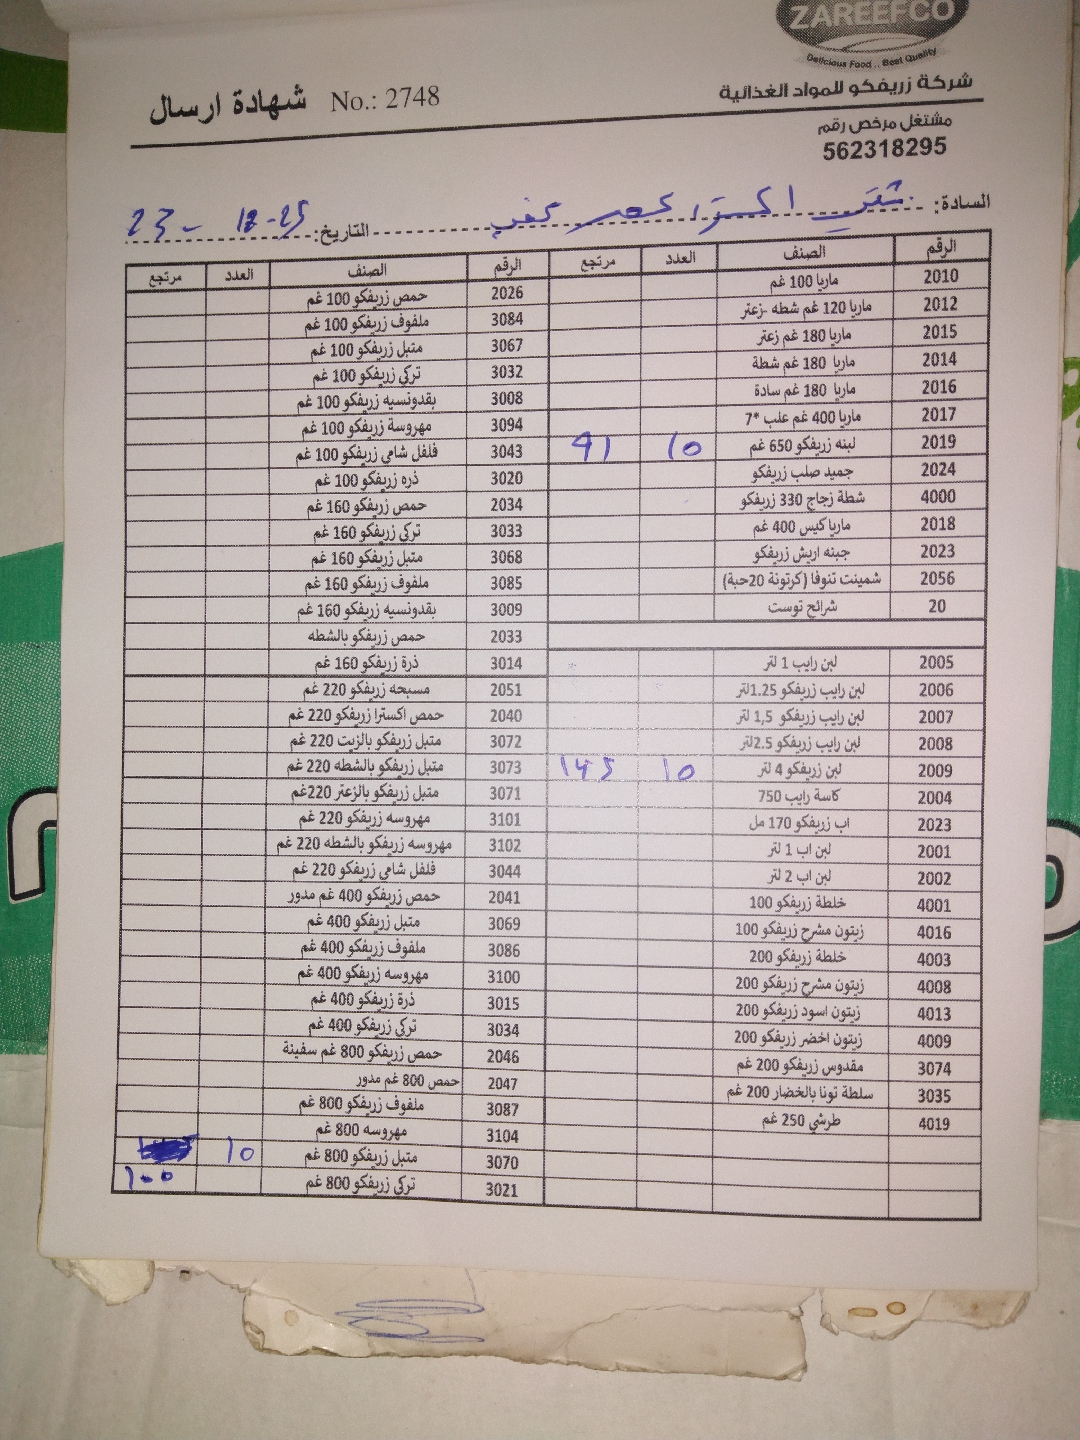 ZAREEFCO
Delicious Food .. Best Quality
شركة زريفكو للمواد الغذائية
شهادة ارسال No.: 2748
مشتغل مرخص رقم
562318295
السادة:
التاريخ: 25-12-23
الرقم الصنف العدد مرتجع الرقم الصنف العدد مرتجع
2010 ماريا 100 غم 2026 حمص زريفكو 100 غم
2012 ماريا 120 غم شطه -زعتر 3084 ملفوف زريفكو 100 غم
2015 ماريا 180 غم زعتر 3067 متبل زريفكو 100 غم
2014 ماريا 180 غم شطة 3032 تركي زريفكو 100 غم
2016 ماريا 180 غم سادة 3008 بقدونسيه زريفكو 100 غم
2017 ماريا 400 غم علب *7 3094 مهروسة زريفكو 100 غم
2019 لبنه زريفكو 650 غم 10 91 3043 فلفل شامي زريفكو 100 غم
2024 جميد صلب زريفكو 3020 ذره زريفكو 100 غم
4000 شطة زجاج 330 زريفكو 2034 حمص زريفكو 160 غم
2018 ماريا كيس 400 غم 3033 تركي زريفكو 160 غم
2023 جبنه اريش زريفكو 3068 متبل زريفكو 160 غم
2056 شمينت تنوفا (كرتونة 20حبة) 3085 ملفوف زريفكو 160 غم
20 شرائح توست 3009 بقدونسيه زريفكو 160 غم
2033 حمص زريفكو بالشطه
2005 لبن رايب 1 لتر 3014 ذرة زريفكو 160 غم
2006 لبن رايب زريفكو 1.25لتر 2051 مسبحه زريفكو 220 غم
2007 لبن رايب زريفكو 1,5 لتر 2040 حمص اكسترا زريفكو 220 غم
2008 لبن رايب زريفكو 2.5لتر 3072 متبل زريفكو بالزيت 220 غم
2009 لبن زريفكو 4 لتر 10 145 3073 متبل زريفكو بالشطه 220 غم
2004 كاسة رايب 750 3071 متبل زريفكو بالزعتر 220غم
2023 اب زريفكو 170 مل 3101 مهروسه زريفكو 220 غم
2001 لبن اب 1 لتر 3102 مهروسه زريفكو بالشطه 220 غم
2002 لبن اب 2 لتر 3044 فلفل شامي زريفكو 220 غم
4001 خلطة زريفكو 100 2041 حمص زريفكو 400 غم مدور
4016 زيتون مشرح زريفكو 100 3069 متبل زريفكو 400 غم
4003 خلطة زريفكو 200 3086 ملفوف زريفكو 400 غم
4008 زيتون مشرح زريفكو 200 3100 مهروسه زريفكو 400 غم
4013 زيتون اسود زريفكو 200 3015 ذرة زريفكو 400 غم
4009 زيتون اخضر زريفكو 200 3034 تركي زريفكو 400 غم
3074 مقدوس زريفكو 200 غم 2046 حمص زريفكو 800 غم سفينة
3035 سلطة تونا بالخضار 200 غم 2047 حمص 800 غم مدور
4019 طرشي 250 غم 3087 ملفوف زريفكو 800 غم
3104 مهروسه 800 غم
3070 متبل زريفكو 800 غم 10
3021 تركي زريفكو 800 غم 100